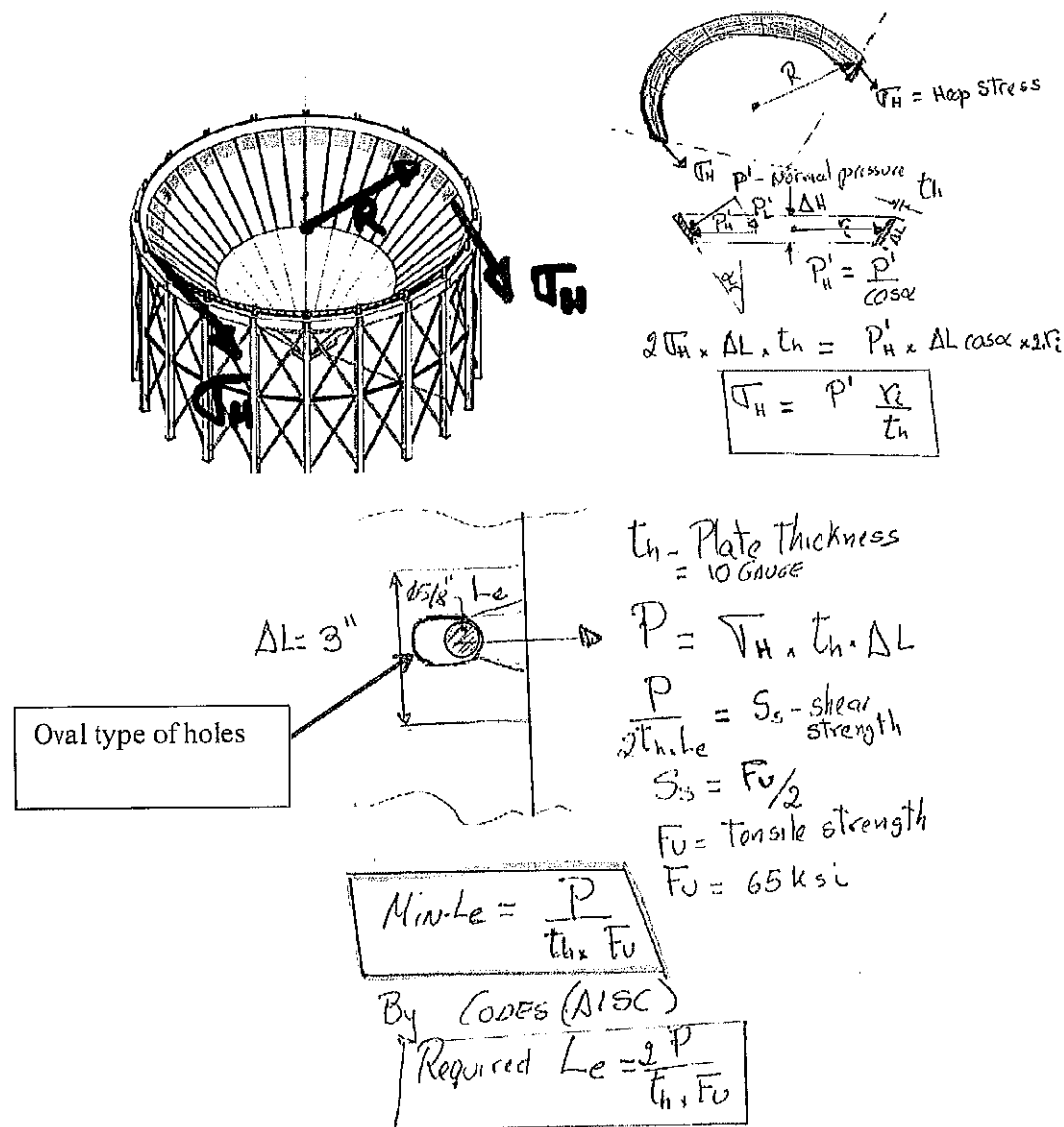 R
σH
σH
R
σH = Hoop Stress
σH
P' - Normal pressure
th
P'L
ΔH
P'H
ri
ΔL
α
P'H = P' / cosα
2σH × ΔL × th = P'H × ΔL cosα × 2.ri
σH = P' ri / th
ΔL = 3"
ø5/8" Le
Oval type of holes
th - Plate Thickness
= 10 GAUGE
P = σH × th · ΔL
P / 2th.Le = Ss - shear
strength
Ss = Fu/2
Fu = tensile strength
Fu = 65 ksi
Min.Le = P / th × Fu
By CODES (AISC)
Required Le = 2 P / th × Fu